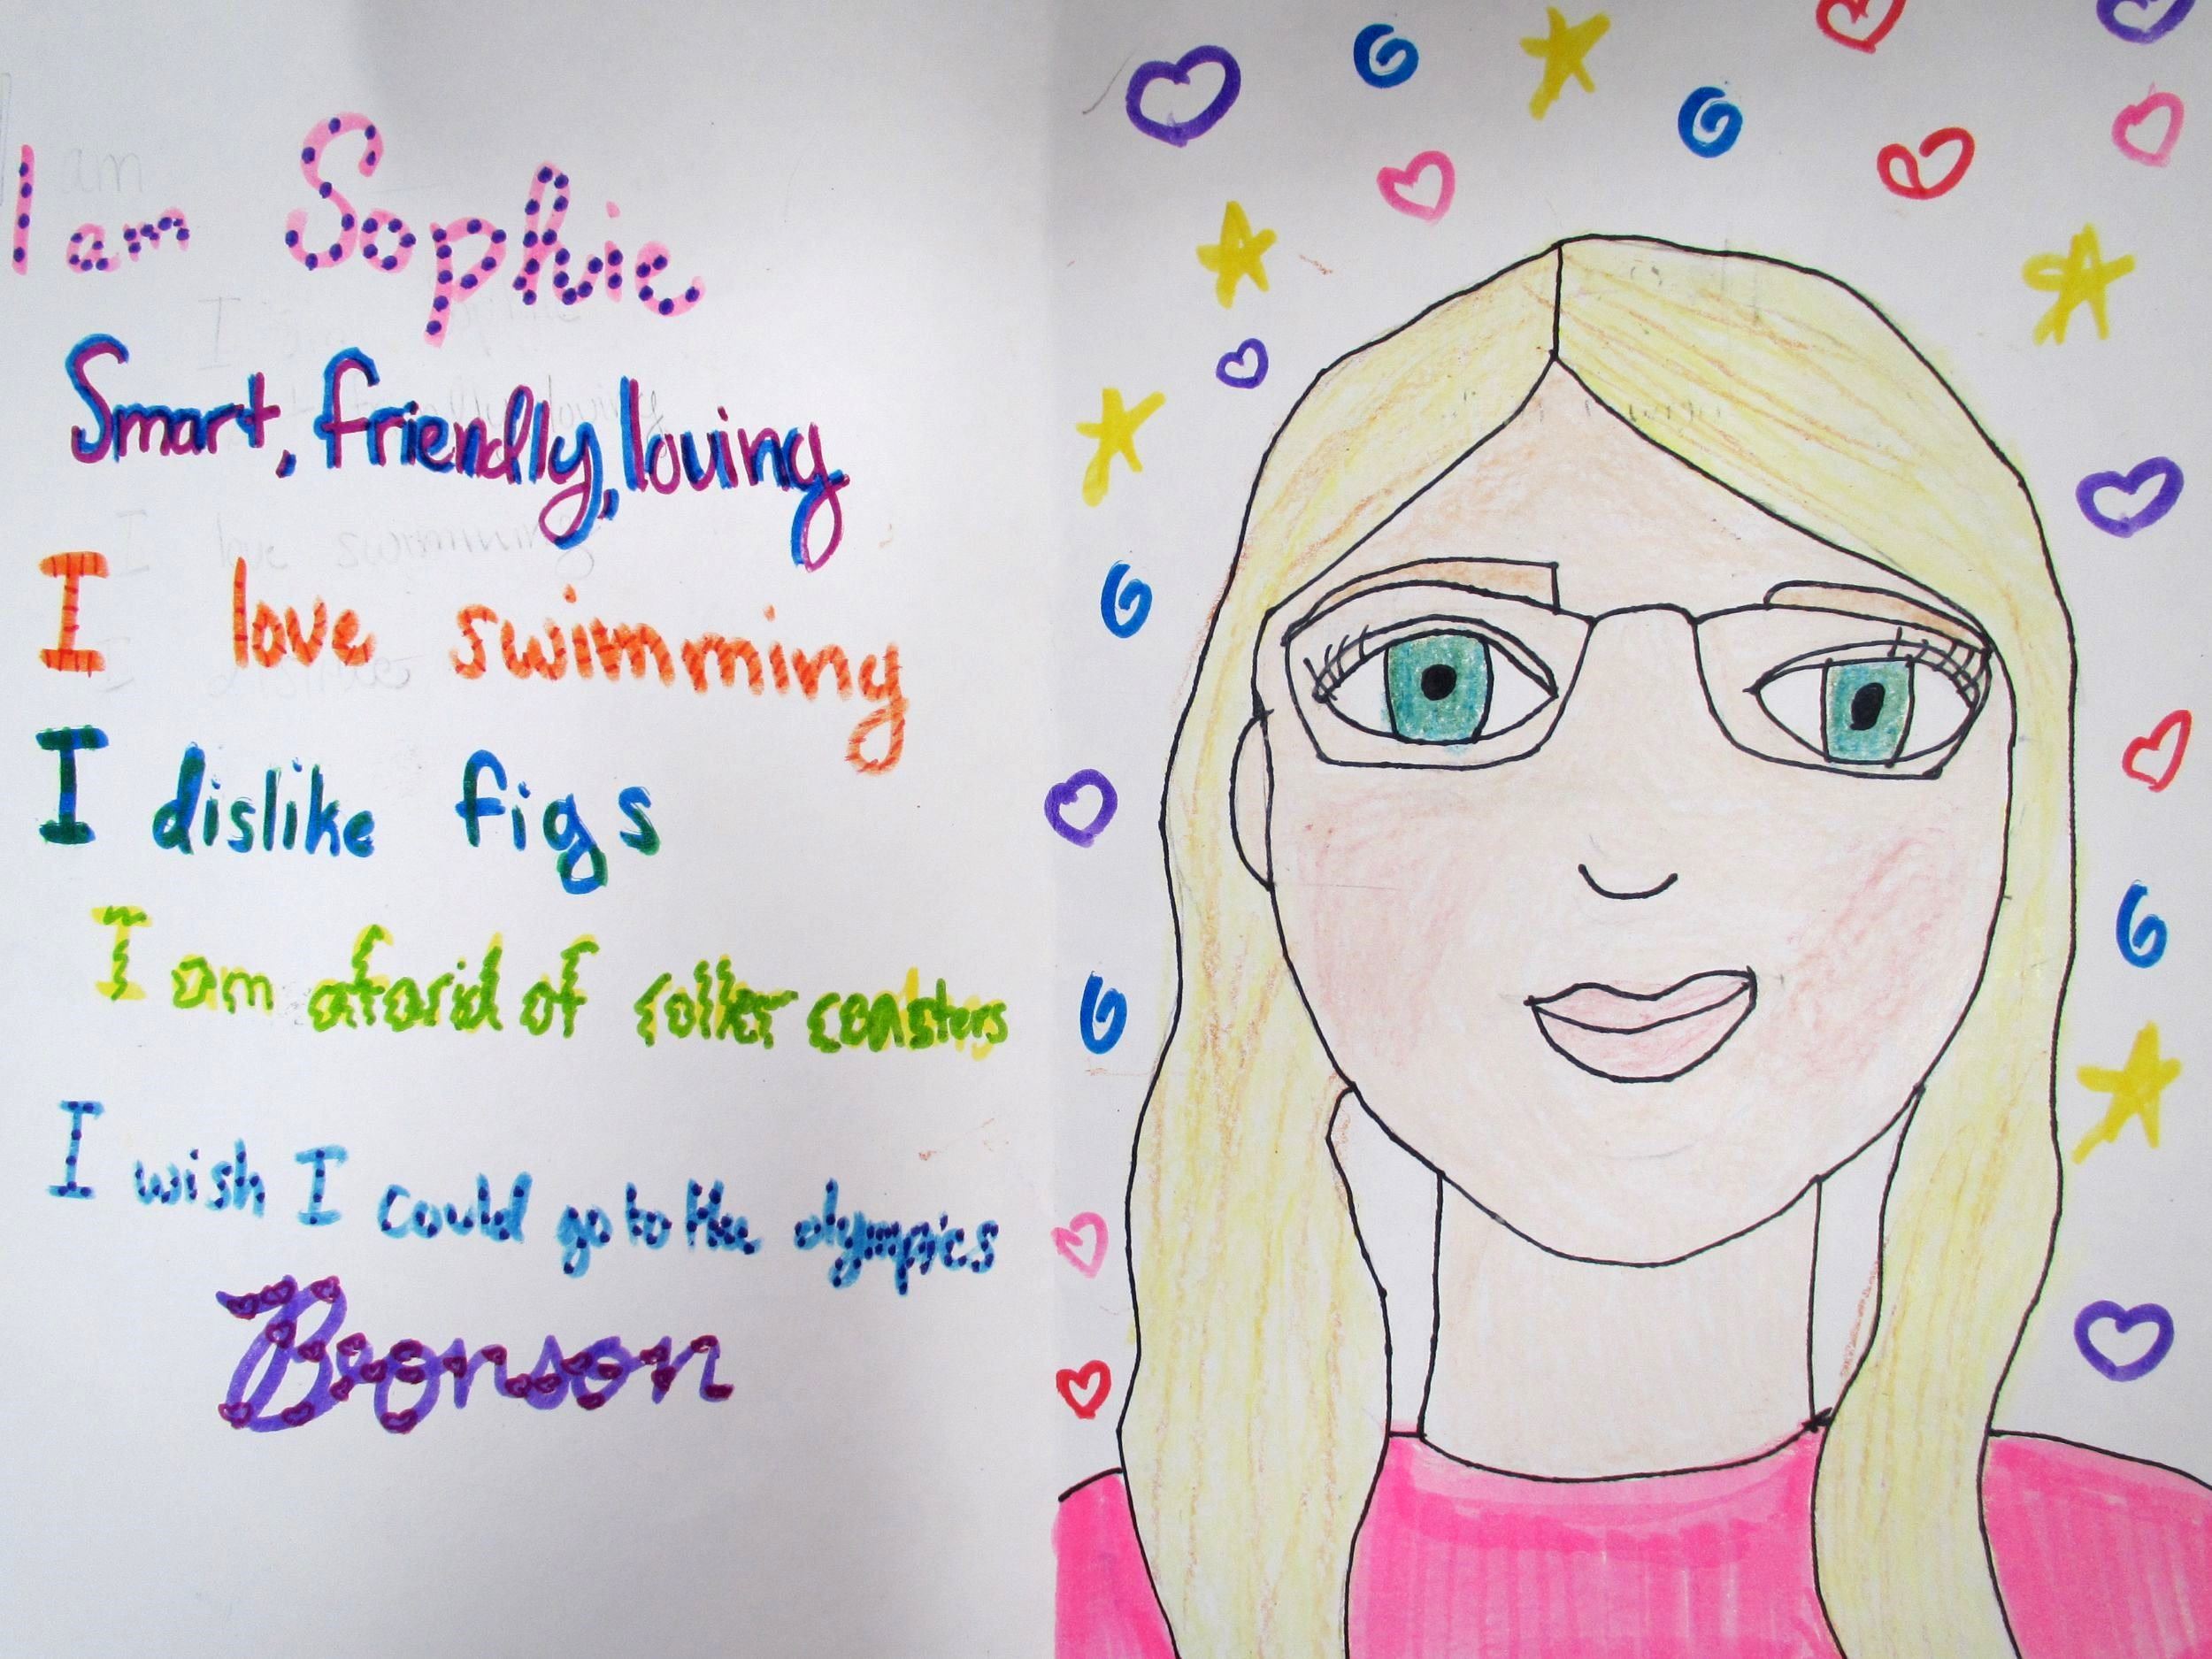 I am Sophie
Smart, friendly, loving
I love swimming
I dislike figs
I am aforid of roller coasters
I wish I could go to the olympics
Bronson